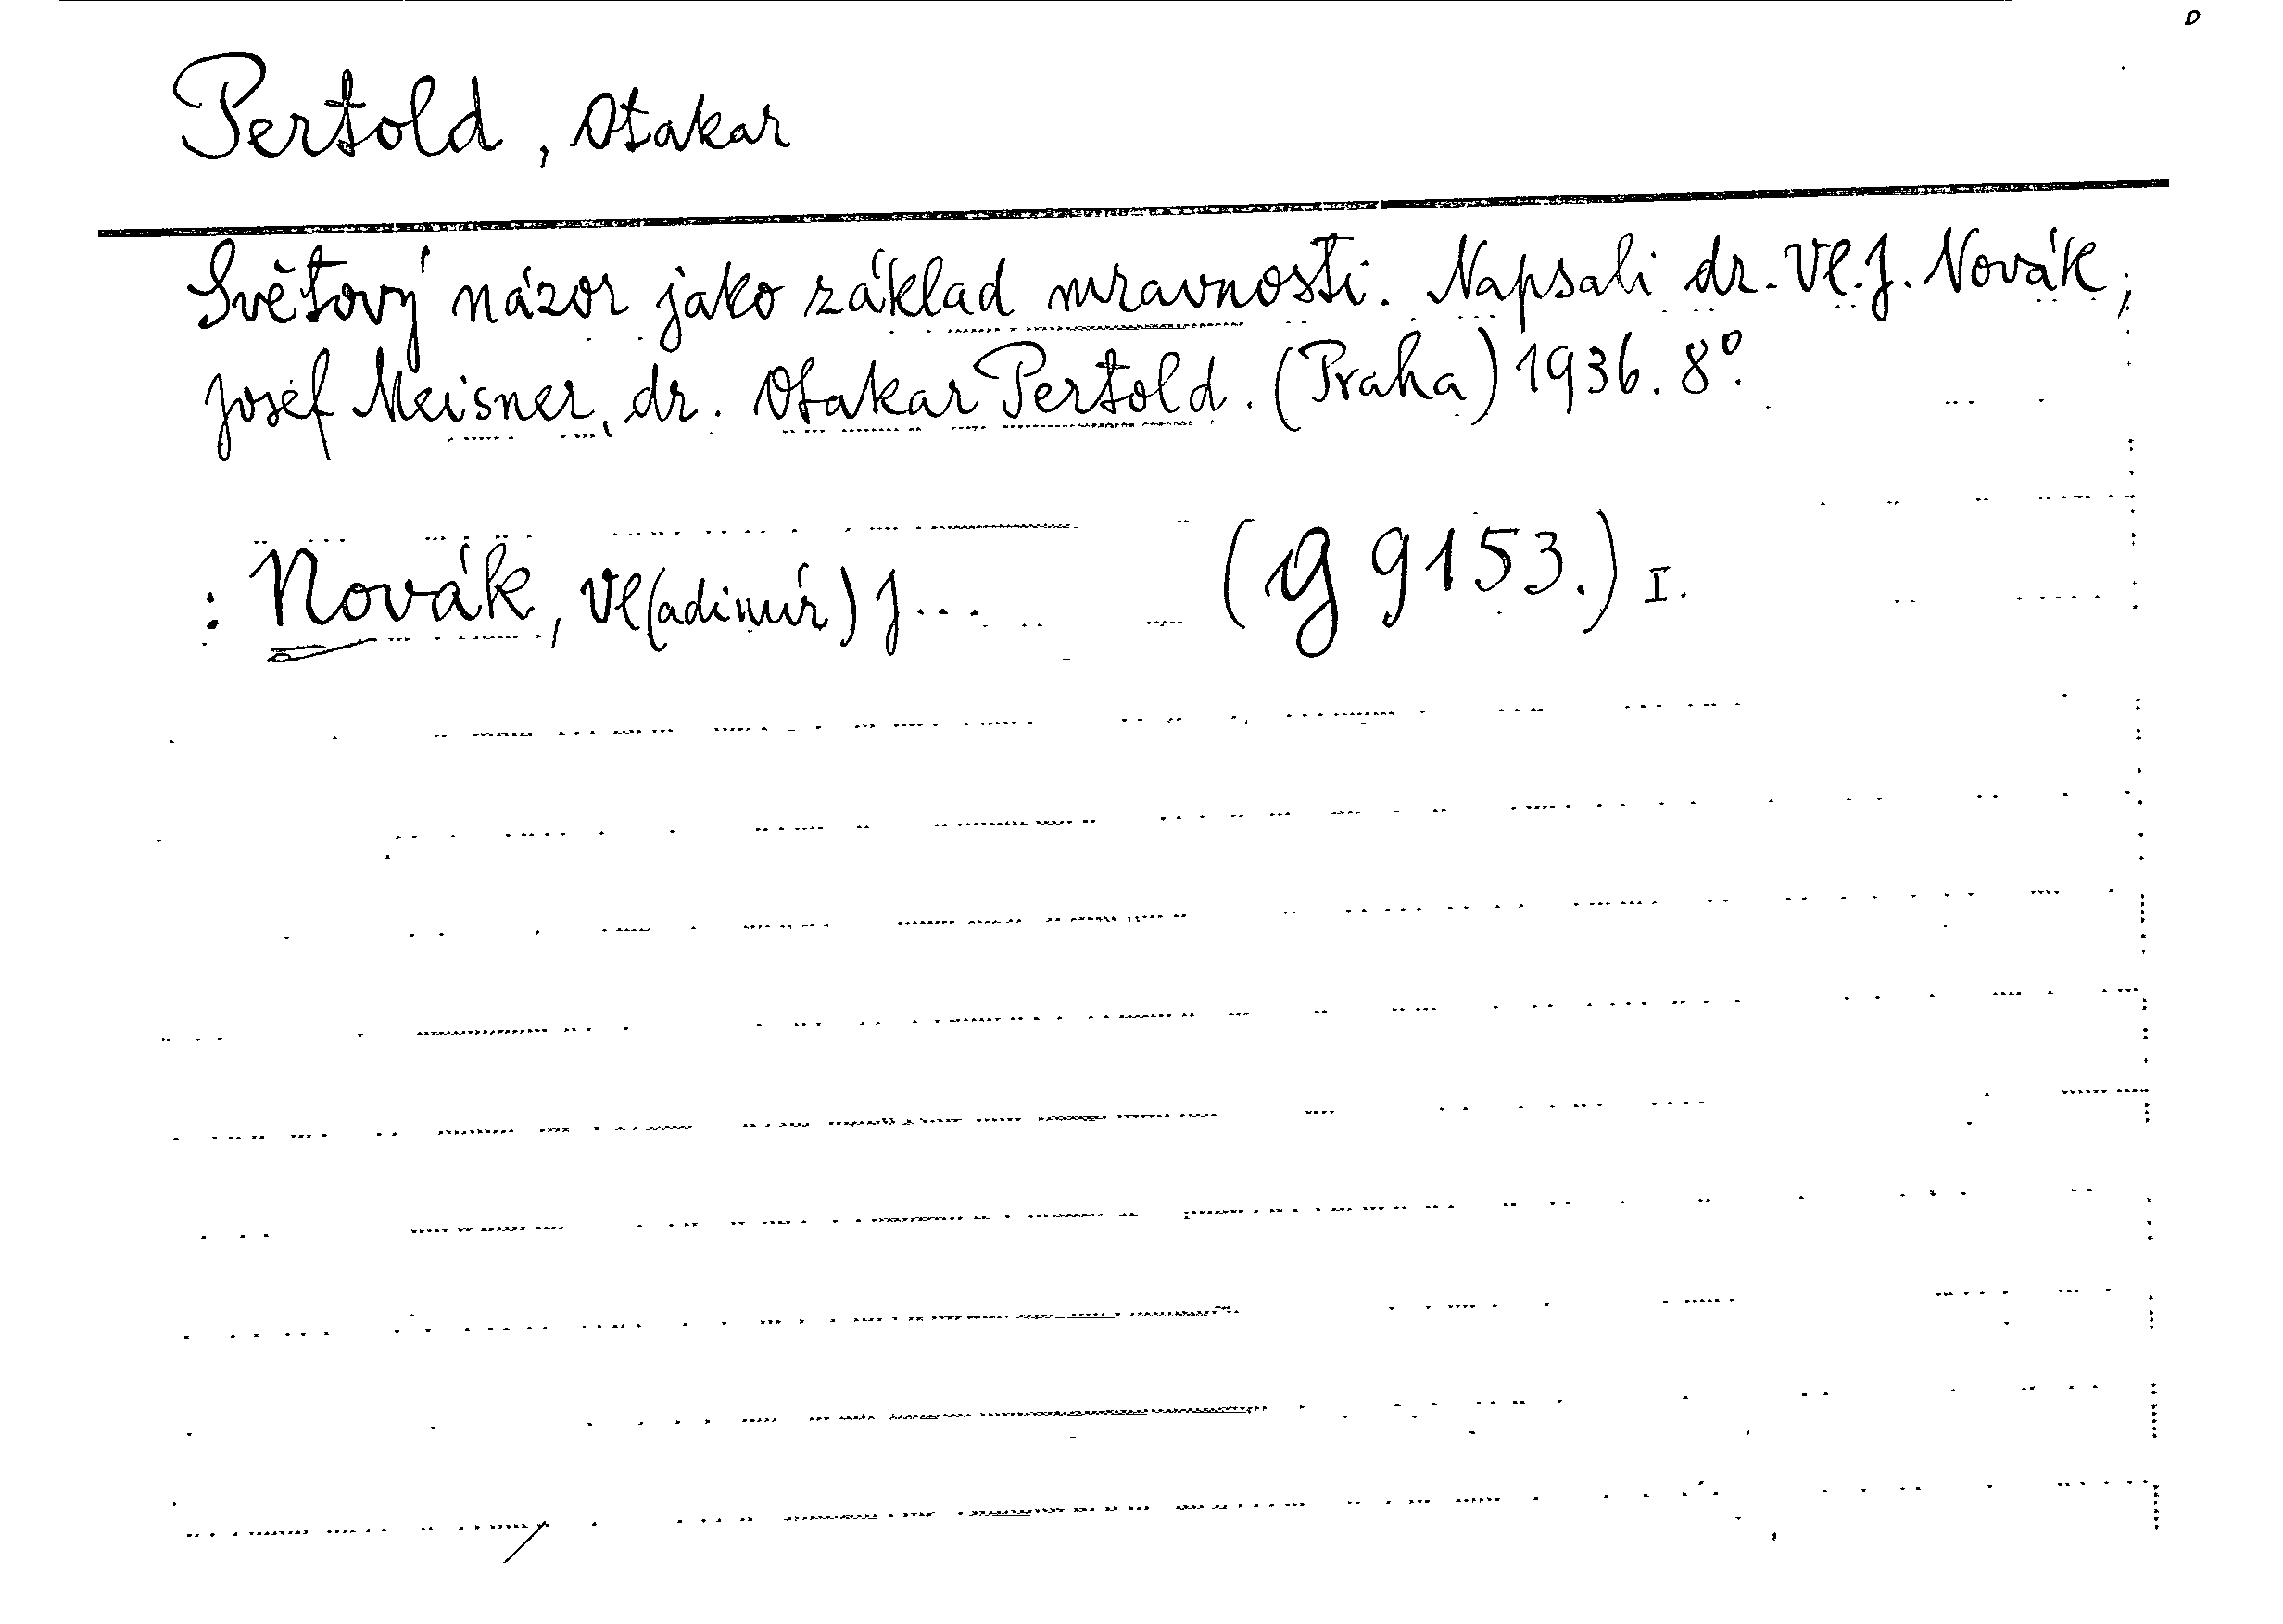 Pertold, Otakar
Světový názor jako základ mravnosti. Napsali dr. Vl. J. Novák,
Josef Meisner, dr. Otakar Pertold. (Praha) 1936. 8°.
: Novák, Vl(adimír) J... (g 9153.) I.